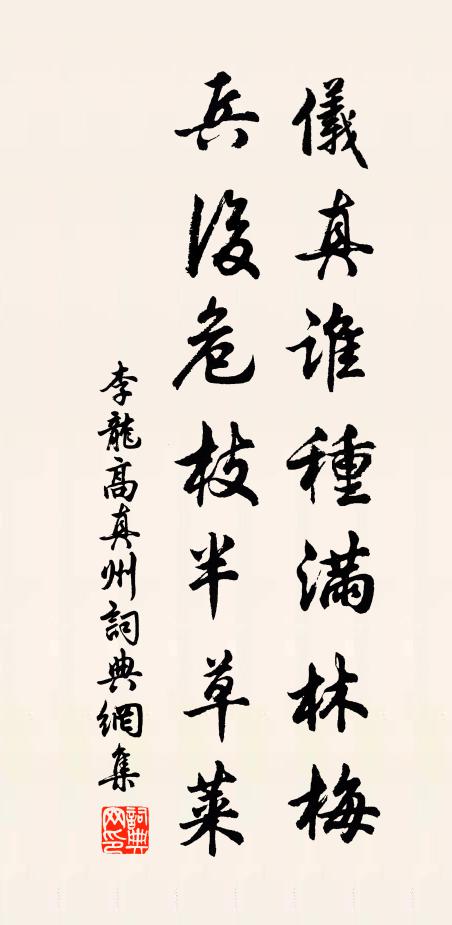 儀真誰種滿林梅
兵後危枝半草萊
李龍高真州詞典網集
詞典网印